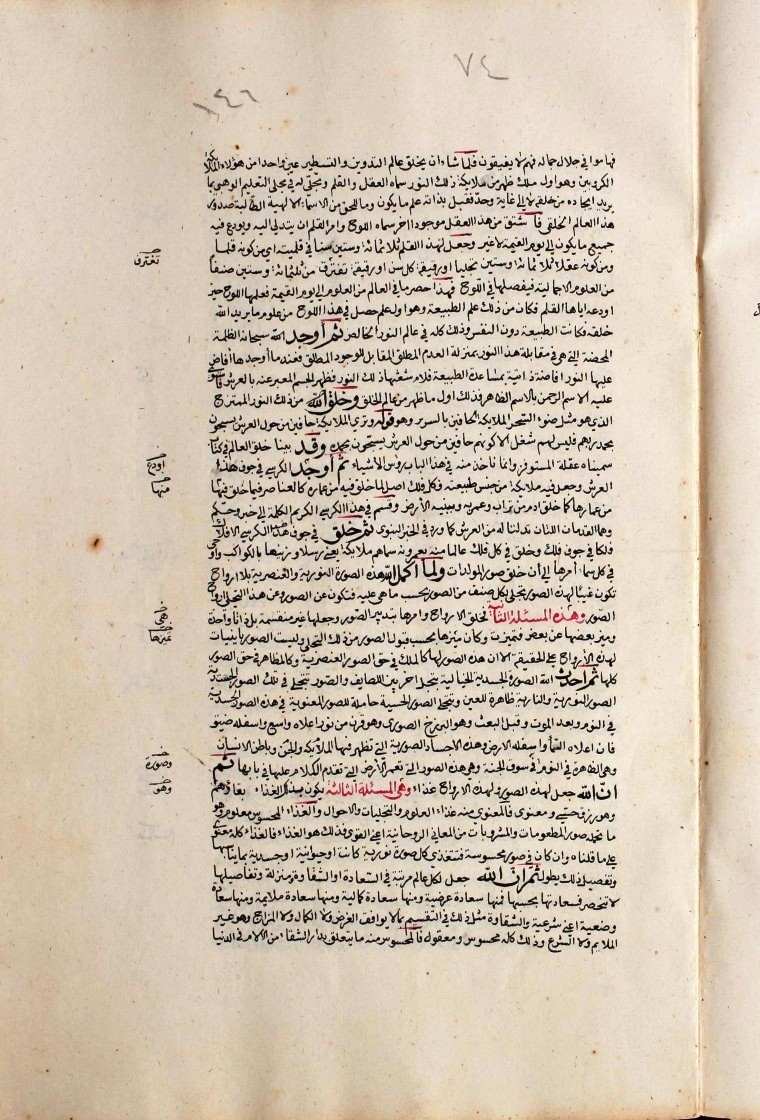 ٧٤
١٤٦
فهاموا في جلال جماله فهم لا يفيقون فلما شاء ان يخلق عالم التدوين والتسطير عين واحدا من هؤلاء الملائكة
الكروبيين وهو اول ملك ظهر من ملايكة ذلك النور سماه العقل والقلم وتجلى له في مجلى التعليم الوهبي بما
يريد ايجاده من خلقه لا الى غاية وحد فقبل بذاته علم ما يكون وما للحق من الاسماء الالهية الطالبة صدور
هذا العالم الخلقي فاشتق من هذا العقل موجودا اخر سماه اللوح وامر القلم ان يتدلى اليه ويودع فيه
جميع ما يكون الى يوم القيمة لا غير وجعل لهذا القلم ثلاثمائة وستين سنا في قلميته اي من كونه قلما
ومن كونه عقلا ثلاثمائة وستين تجليا او رقيقة كل سن او رقيقة تغترف من ثلثمائة وستين صنفا
من العلوم الاجمالية فيفصلها في اللوح فهذا حصر ما في العالم من العلوم الى يوم القيمة فعلمها اللوح حين
اودعه اياها القلم فكان من ذلك علم الطبيعة وهو اول علم حصل في هذا اللوح من علوم ما يريد الله
خلقه فكانت الطبيعة دون النفس وذلك كله في عالم النور الخالص ثم أوجد الله سبحانه الظلمة
المحضة التي هي في مقابلة هذا النور بمنزلة العدم المطلق المقابل للوجود المطلق فعندما أوجدها أفاض
عليها النور افاضة ذاتية بمساعدة الطبيعة فلاءم شعثها ذلك النور فظهر الجسم المعبر عنه بالعرش فاستوى
عليه الاسم الرحمن بالاسم الظاهر فذلك اول ما ظهر من عالم الخلق وخلق الله من ذلك النور الممتزج
الذي هو مثل ضوء السحر الملايكة الحافين بالسرير وهو قوله وترى الملايكة حافين من حول العرش يسبحون
بحمد ربهم فليس لهم شغل الا كونهم حافين من حول العرش يسبحون بحمده وقد بينا خلق العالم في كتاب
سميناه عقلة المستوفز وانما ناخذ منه في هذا الباب رءوس الأشياء ثم أوجد الكرسي في جوف هذا
العرش وجعل فيه ملايكة من جنس طبيعته وكل فلك اصل لما خلق فيه من عماره كالعناصر فيما خلق فيها
من عمارها كما خلق ادم من تراب وعمر به وببنيه الارض وقسم في هذا الكرسي الكريم الكلمة الى خبر وحكم
وهما القدمان اللتان تدلتا له من العرش كما ورد في الخبر النبوي ثم خلق في جوف هذا الكرسي الافلاك
فلكا في جوف فلك وخلق في كل فلك عالما منه يعمرونه سماهم ملايكة يعني رسلا وزينها بالكواكب واوحى
في كل سماء أمرها الى أن خلق صور المولدات ولما أكمل الله هذه الصورة النورية والعنصرية بلا ارواح
تكون غيبا لهذه الصور تجلى لكل صنف من الصور بحسب ما هي عليه فتكون عن الصور وعن هذا التجلي ارواح
الصور وهذه المسئلة الثانية فخلق الارواح وامرها بتدبير الصور وجعلها غير منقسمة بل ذاتا واحدة
وميز بعضها عن بعض فتميزت وكان ميزها بحسب قبول الصور من ذلك التجلي وليست الصور بأينيات
لهذه الأرواح على الحقيقة الا ان هذه الصور لها كالملك في حق الصور العنصرية وكالمظاهر في حق الصور
كلها ثم أحدث الله الصورة الجسدية الخيالية بتجل اخر بين اللطايف والصور تتجلى في تلك الصور الجسدية
الصور النورية والنارية ظاهرة للعين وتتجلى الصور الحسية حاملة للصور المعنوية في هذه الصور الجسدية
في النوم وبعد الموت وقبل البعث وهو البرزخ الصوري وهو قرن من نور اعلاه واسع واسفله ضيق
فان اعلاه العماء واسفله الارض وهذه الاجساد الصورية التي تظهر فيها الملايكة والجن وباطن الانسان
وهي الظاهرة في النوم في سوق الجنة وهي هذه الصور التي تعمر الأرض التي تقدم الكلام عليها في بابها ثم
ان الله جعل لهذه الصور ولهذه الارواح غذاء وهي المسئلة الثالثة يكون بذلك الغذاء بقاؤهم
وهو رزق حسي ومعنوي فالمعنوي منه غذاء العلوم والتجليات والاحوال والغذاء المحسوس معلوم وهو
ما تحمله صور المطعومات والمشروبات من المعاني الروحانية اعني القوى فذلك هو الغذاء فالغذاء كله معنوي
على ما قلناه وان كان في صور محسوسة فتتغذى كل صورة نورية كانت او حيوانية او جسدية بما يناسبها
وتفصيل ذلك يطول ثم ان الله جعل لكل عالم مرتبة في السعادة او الشقاوة ومنزلة وتفاصيلها
لا تنحصر فسعادتها بحسبها فمنها سعادة غرضية ومنها سعادة كمالية ومنها سعادة ملايمة ومنها سعادة
وضعية اعني شرعية والشقاوة مثل ذلك في التقسيم بما لا يوافق الغرض ولا الكمال ولا المزاج وهو غير
الملايم ولا الشرع وذلك كله محسوس ومعقول فالمحسوس منه ما يتعلق بدار الشقاء من الالام في الدنيا
تغترف
اودع
فيها
هي
غيرها
وصورة
وهو